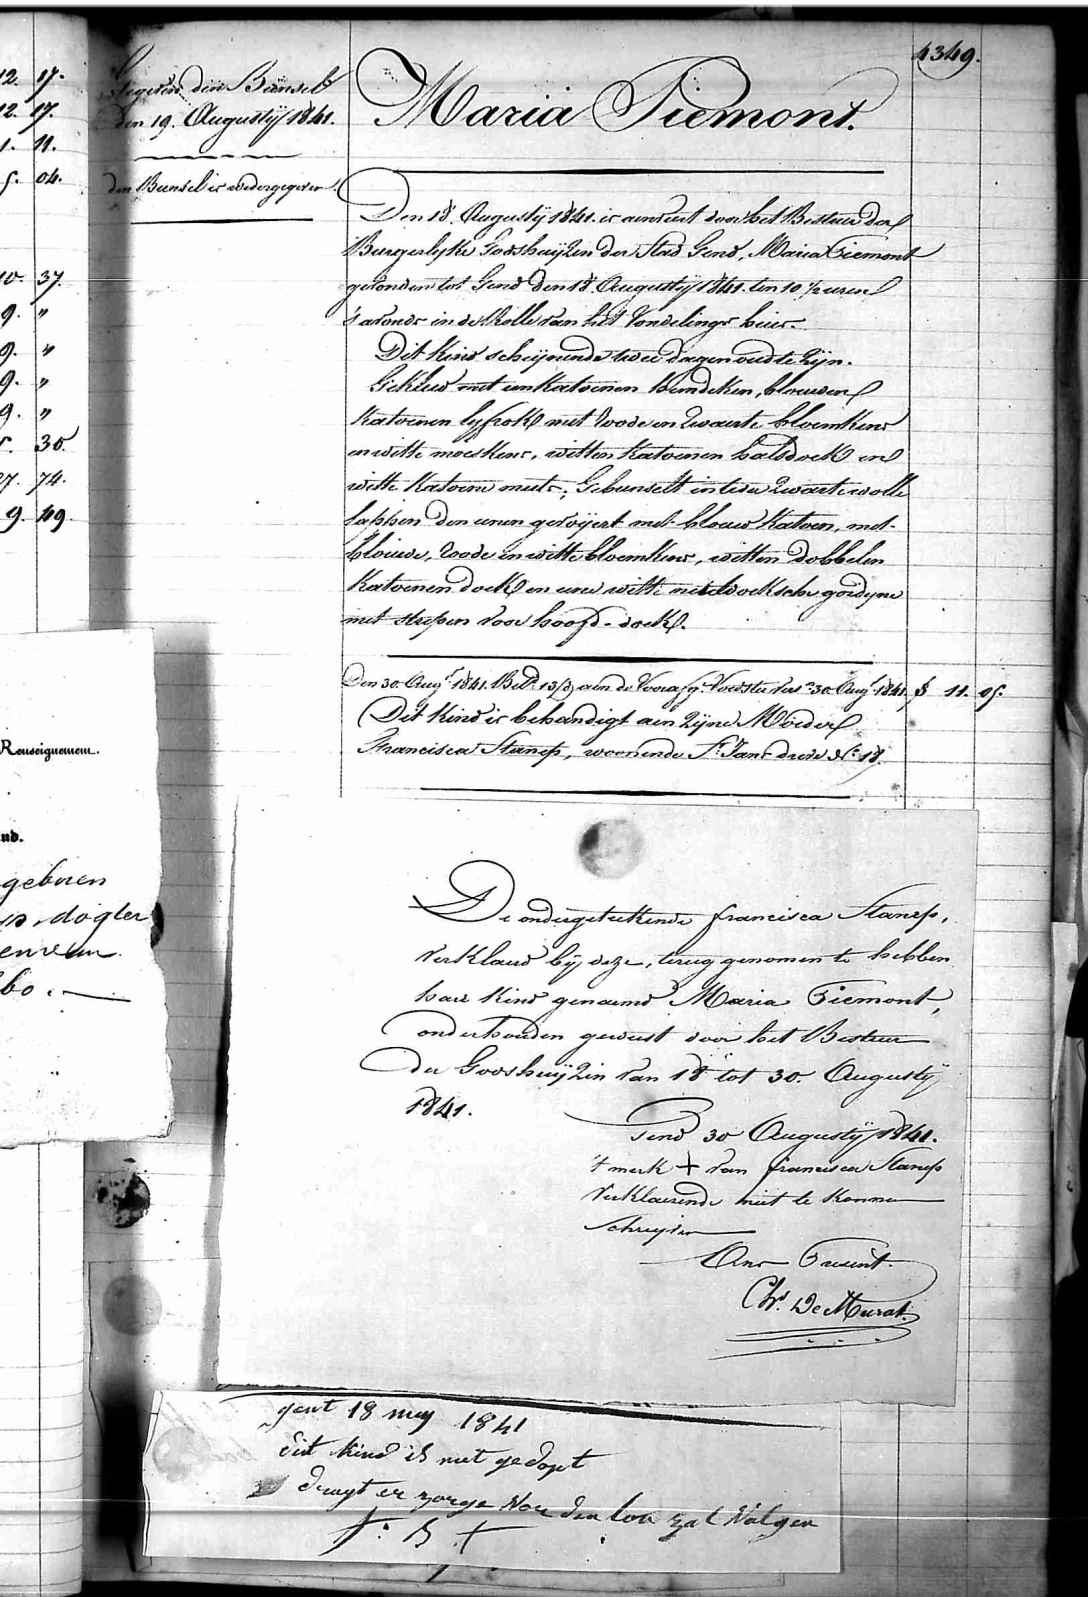 12. 17.
12. 17.
1. 11.
5. 04.
10. 37.
9. "
9. "
9. "
9. "
5. 30.
27. 74.
9. 49.
Renseignemens.
nd.
geboren
dogter
bo.
4349.
den Bunsel
den 19. Augustÿ 1841.
den Bunsel is wedergegeven
Maria Piemont.
Den 18. Augustÿ 1841. is aenveert door het Bestuer der
Burgerlyke Godshuÿzen der Stad Gend, Maria Piemont
gevonden tot Gend den 18. Augustÿ 1841. ten 10 ½ uren
's avonds in de Rolle van het Vondelings huis.
Dit Kind schÿnende twee dagen oud te zÿn.
Gekleed met een Katoenen hemdeken, blouwen
Katoenen lyfrok met roode en zwarte bloemkens
en witte moeskens, witten Katoenen halsdoek en
witte Katoene muts; Gebunselt in twee zwarte wolle
lappen den eenen gevoÿert met blouw Katoen, met
blouwe, roode en witte bloemkens, witten dobbelen
Katoenen doek en eene witte neteldoeksche goidyne
met strepen voor hoofd-doek.
Den 30 Augt 1841. Bet. 13 aen de Voedster 30 Augt 1841. 11. 05.
Dit Kind is behandigt aen zÿne Moeder
Francisca Stanesp, woonende St. Jans dreve No. 18.
De ondergeteekende francisca Stanesp,
verklaerd bÿ deze, terug genomen te hebben
haer Kind genaemd Maria Piemont,
onderhouden geweest door het Bestuer
der Godshuÿzen van 18 tot 30. Augustÿ
1841.
Gend 30 Augustÿ 1841.
't merk + van francisca Stanesp
verklaerende niet te konnen
schryven
Ons Present.
Chs. De Murat.
gent 18 mey 1841
dit kind is niet gedopt
draegt er zorge voor den loon zal volgen
f. B +